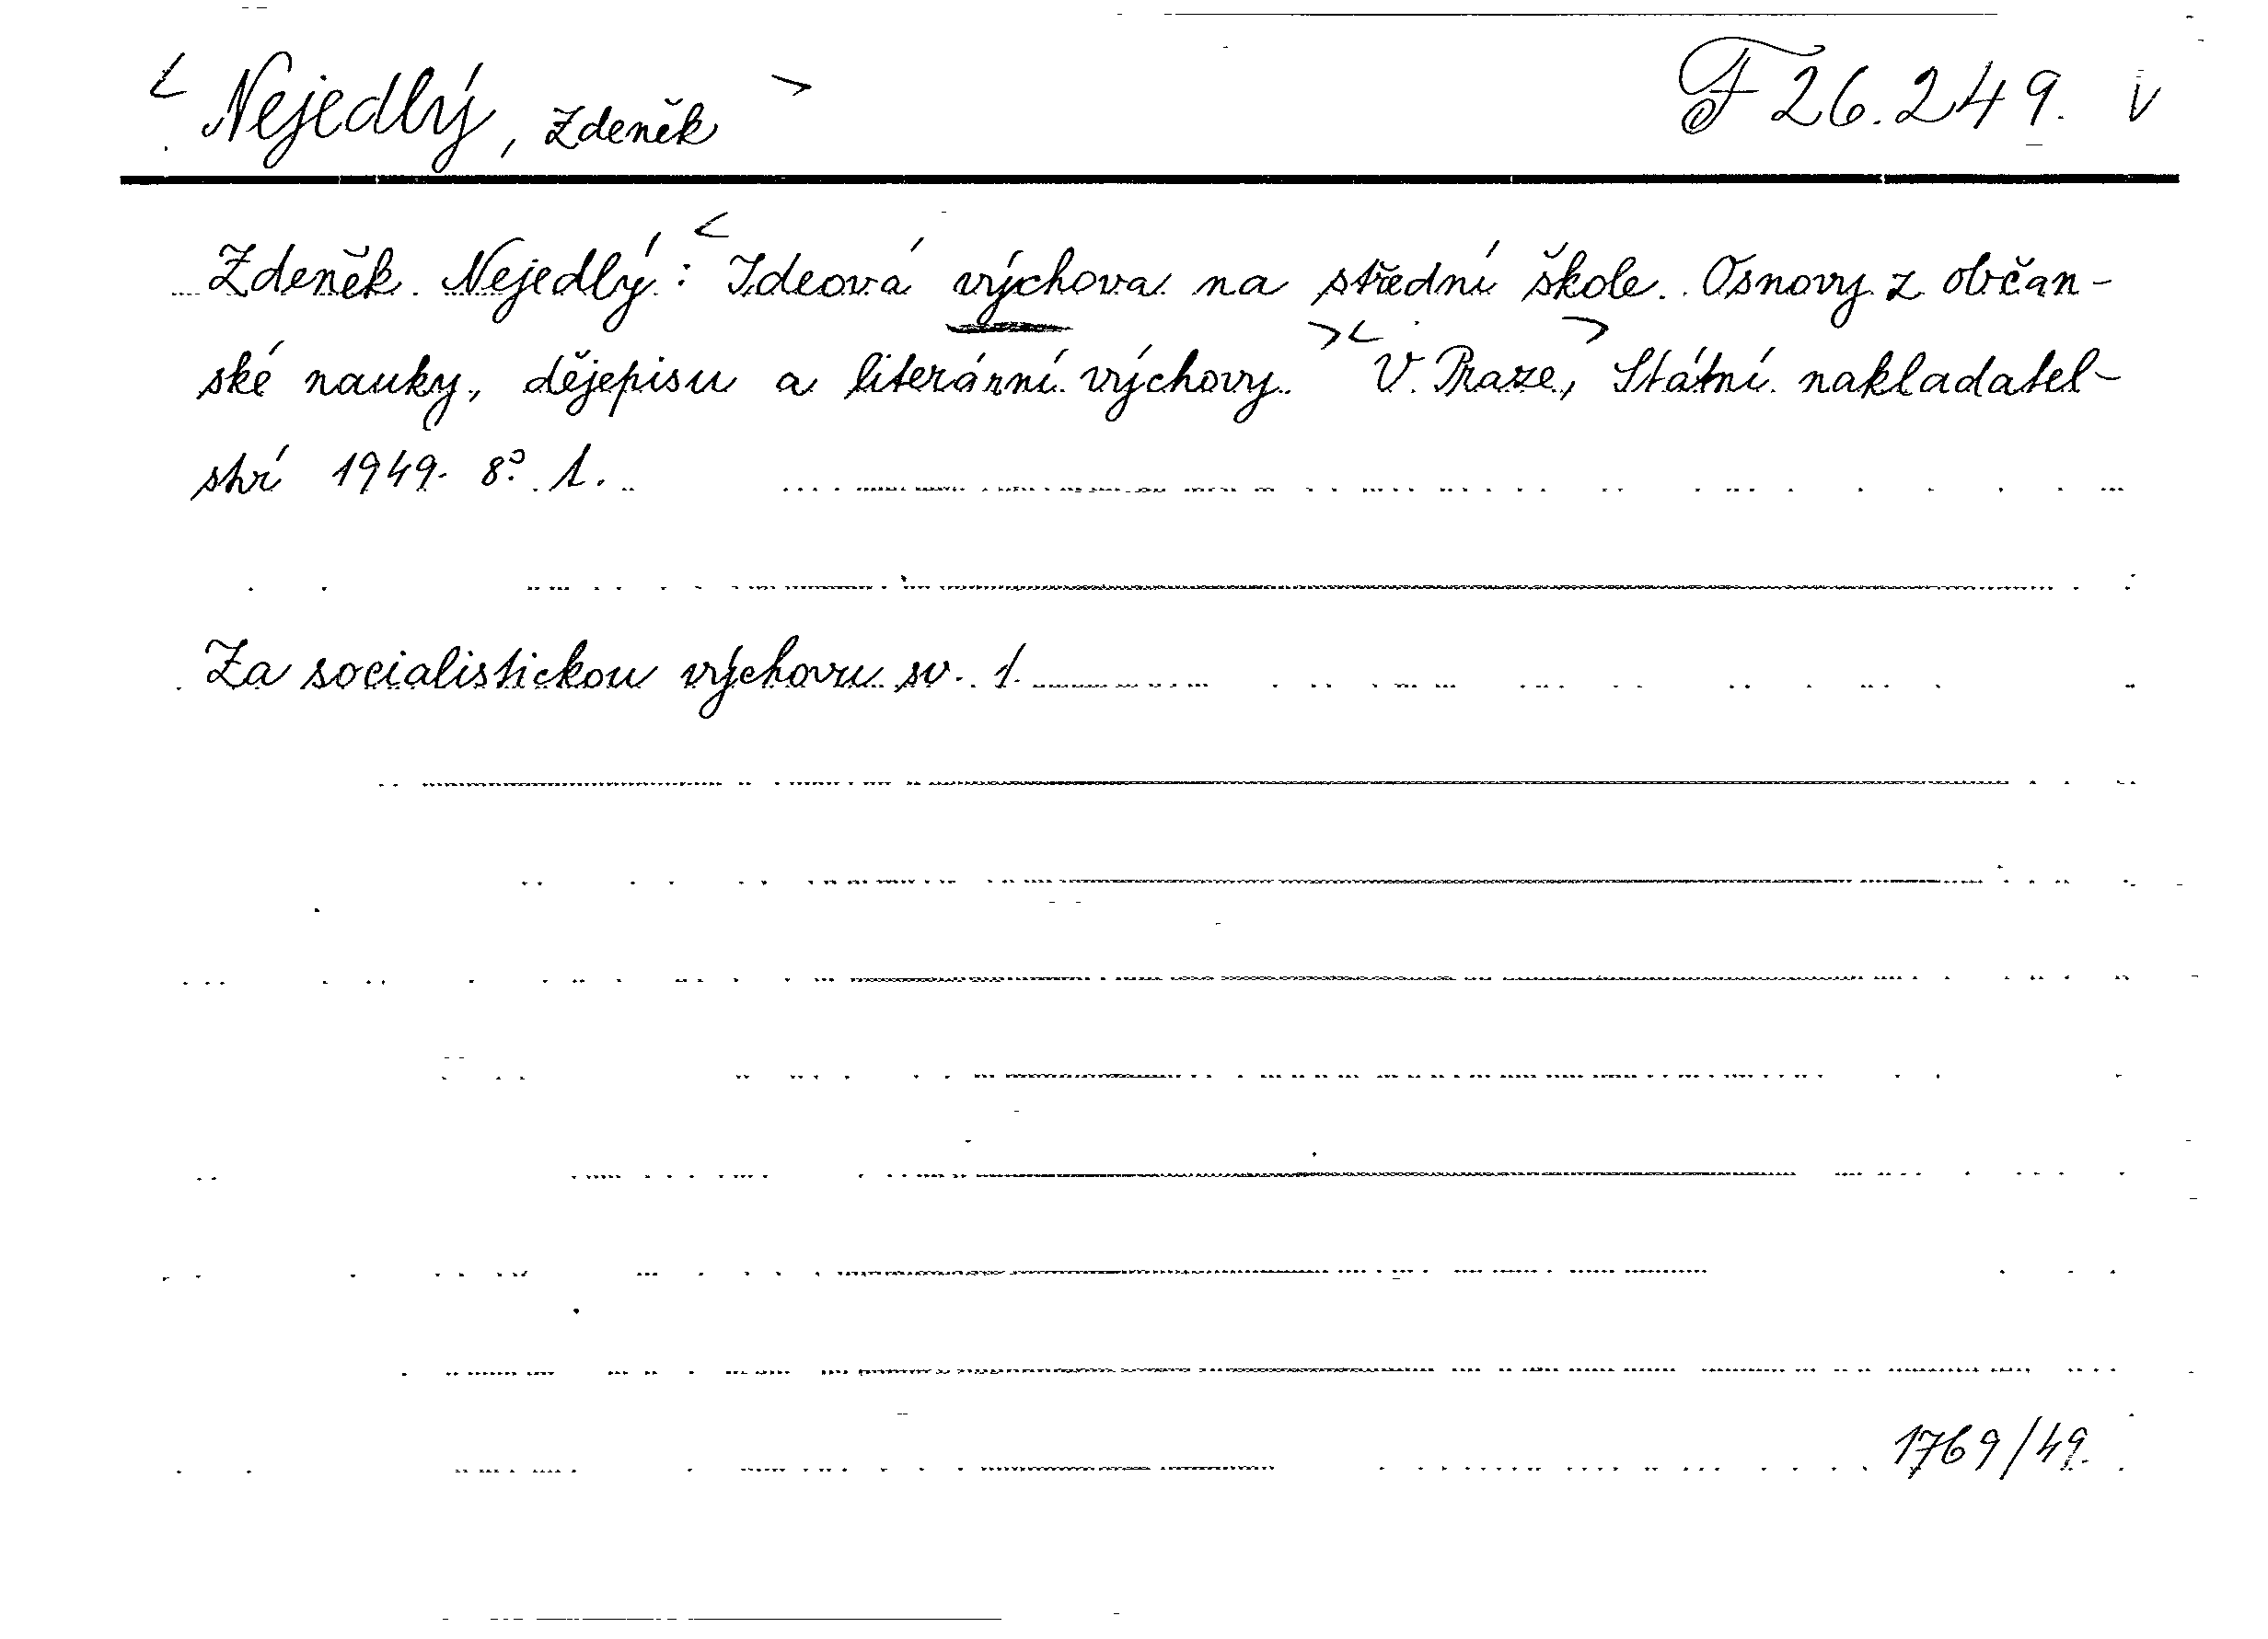 < Nejedlý, Zdeněk > F 26.249. V
Zdeněk Nejedlý: < Ideová výchova na střední škole. Osnovy z občan-
ské nauky, dějepisu a literární výchovy. > < V Praze, > Státní nakladatel-
ství 1949. 8° 1.
Za socialistickou výchovu sv. 1.
1769/49.